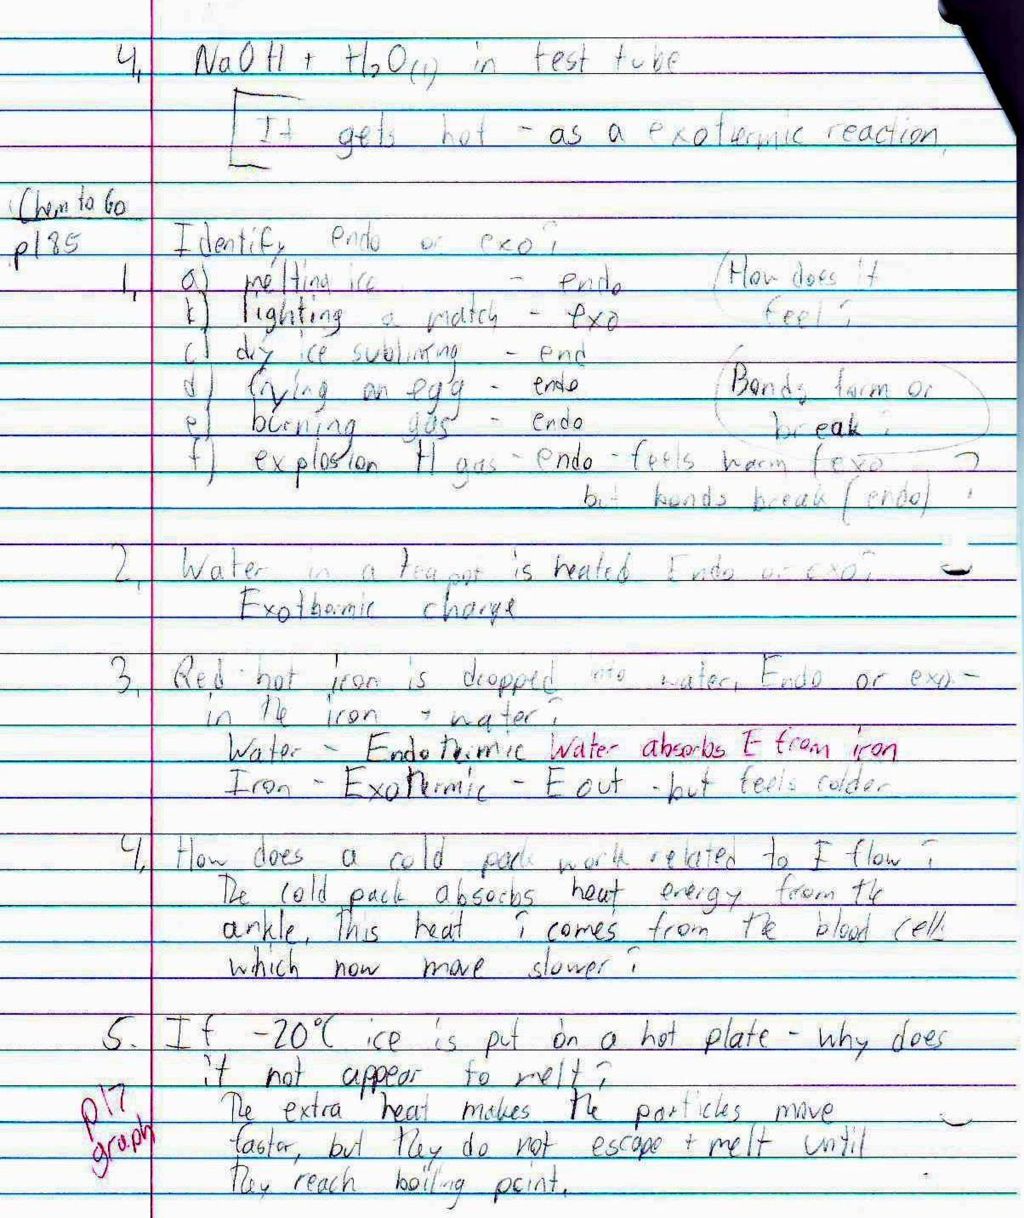 4. NaOH + H₂O(l) in test tube
It gets hot - as a exothermic reaction.
Chem to Go
p185
Identify endo or exo?
1. a) melting ice - endo (How does it
b) lighting a match - exo feel?
c) dry ice subliming - end
d) frying an egg - endo (Bonds form or
e) burning gas - endo break?
f) explosion H gas - endo - feels warm (exo ?
but bonds break (endo) ?
2. Water in a teapot is heated Endo or exo?
Exothermic change
3. Red hot iron is dropped into water. Endo or exo -
in the iron + water?
Water - Endothermic Water absorbs E from iron
Iron - Exothermic - E out - but feels colder
4. How does a cold pack work related to E flow?
The cold pack absorbs heat energy from the
ankle. This heat ? comes from the blood cells
which now move slower?
5. If -20°C ice is put on a hot plate - why does
it not appear to melt?
p17
graph
The extra heat makes the particles move
faster, but they do not escape + melt until
they reach boiling point.